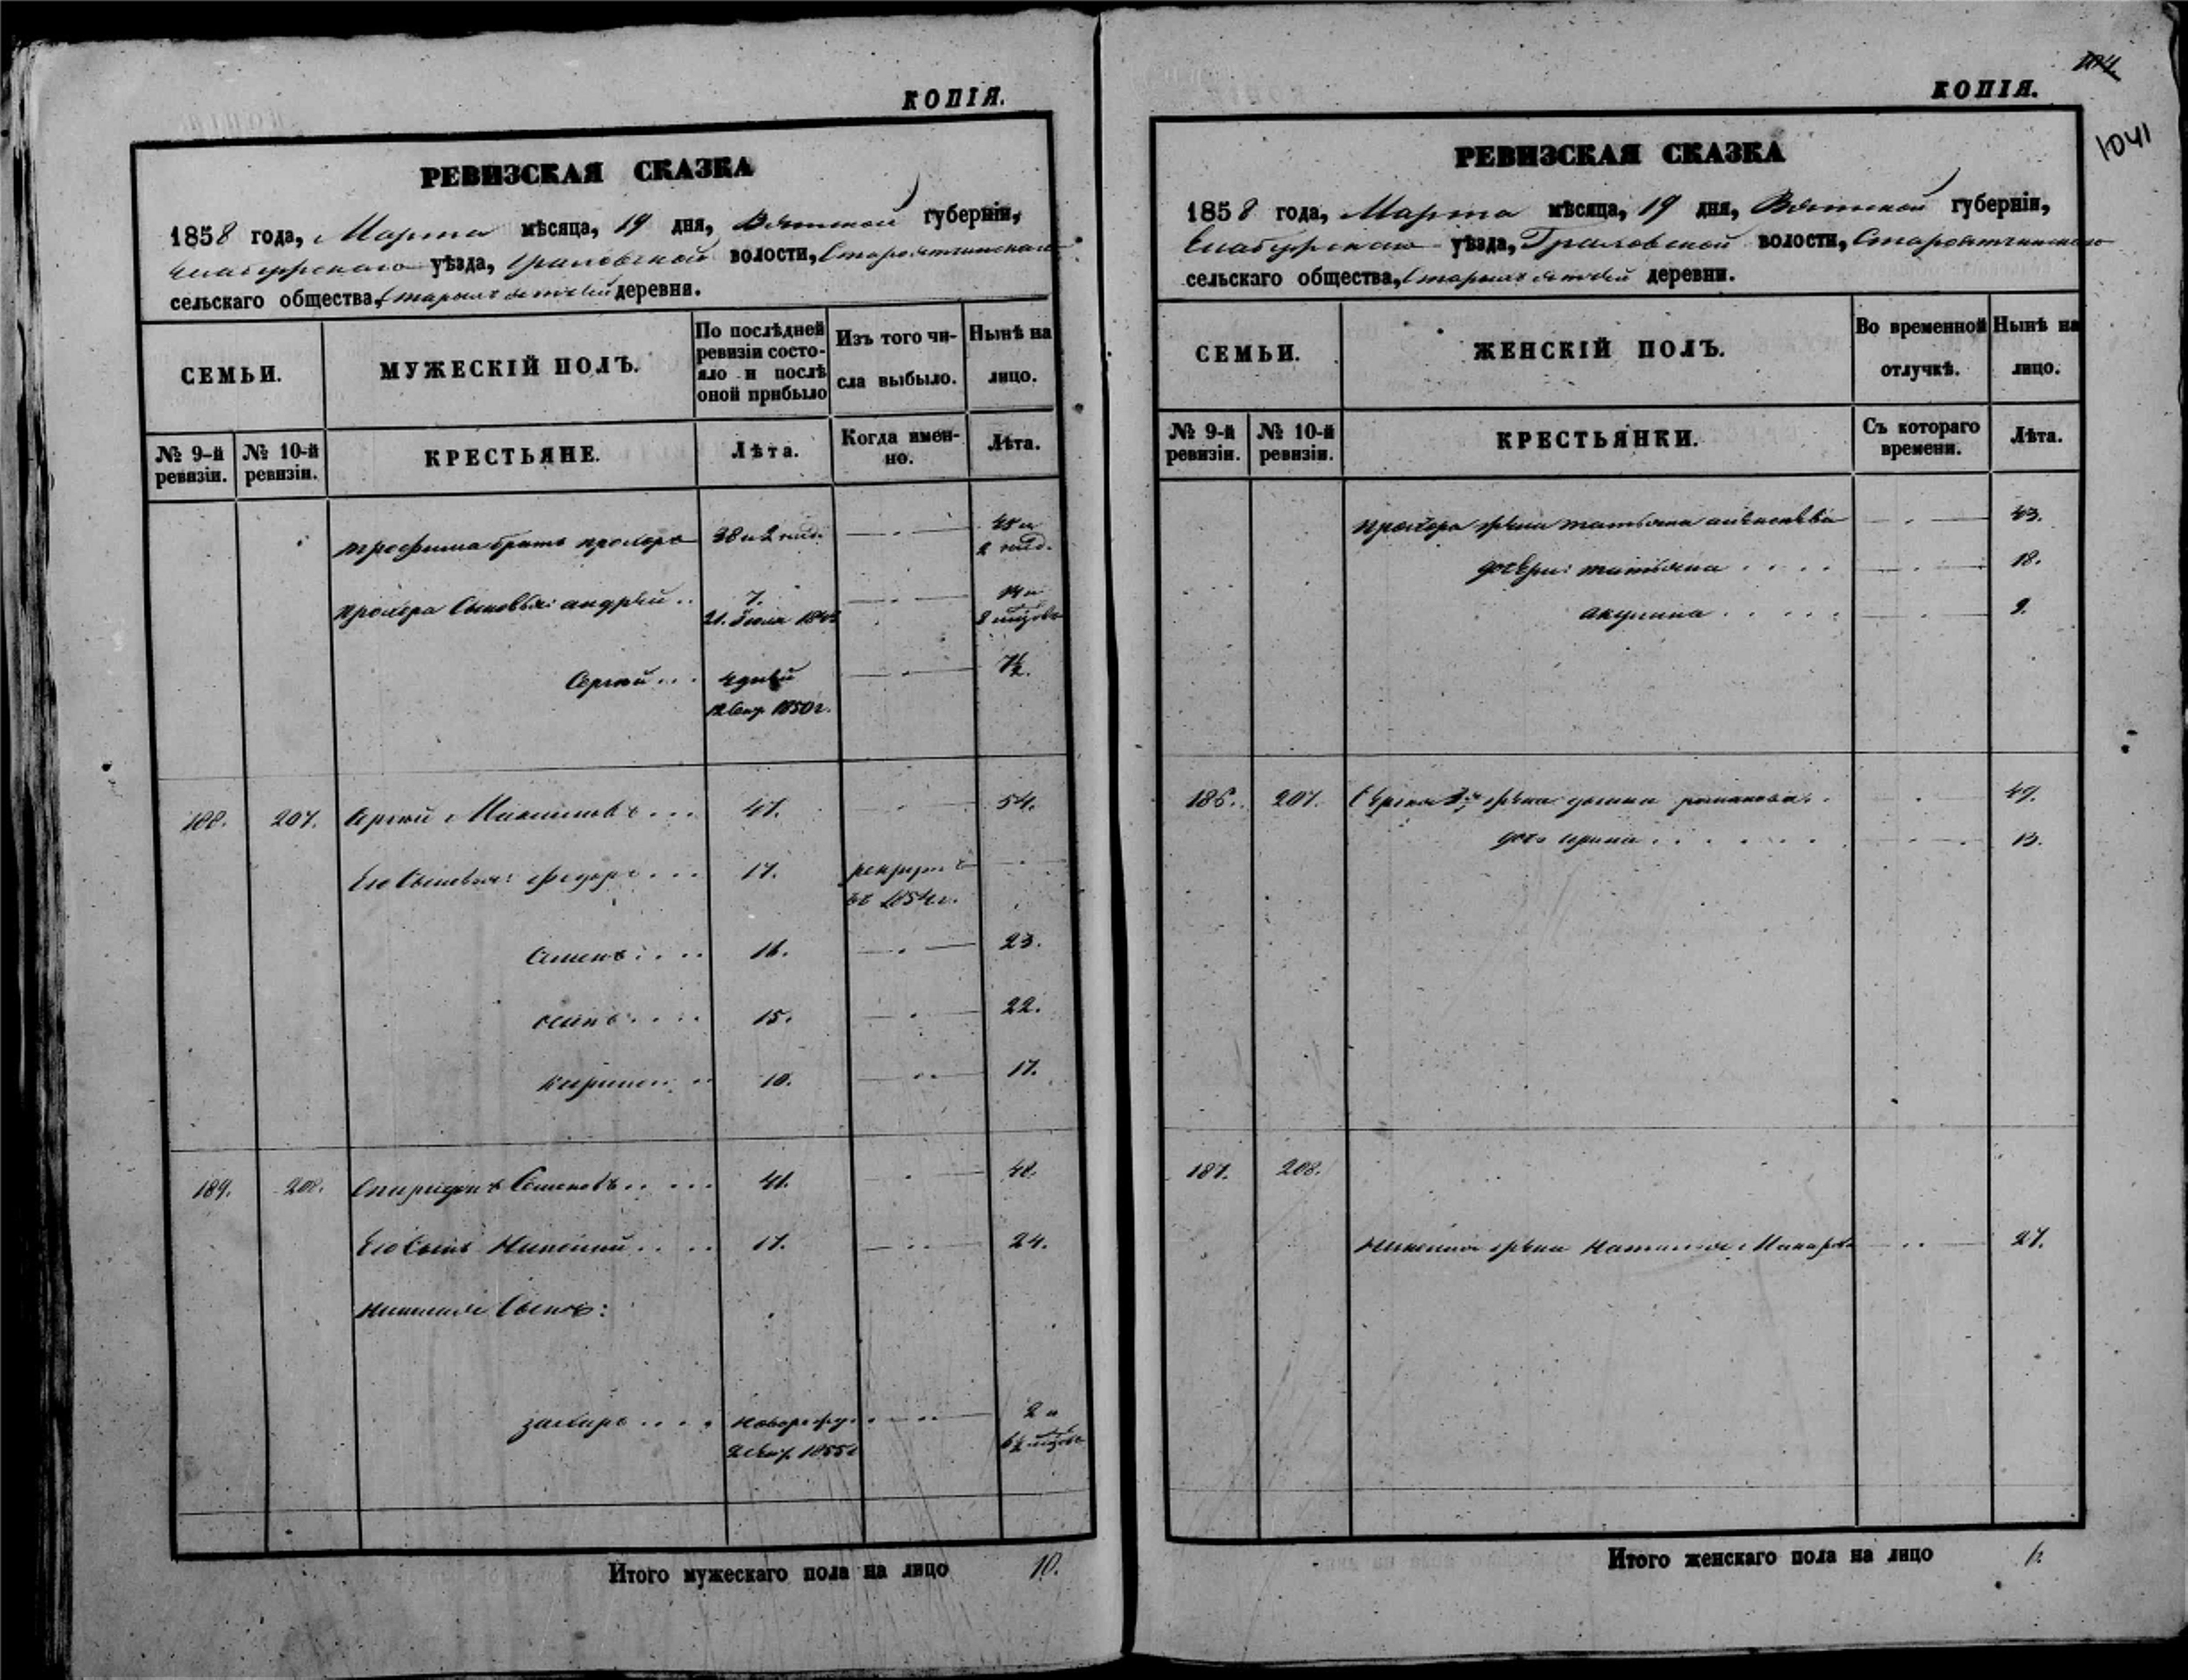 КОПІЯ.
РЕВИЗСКАЯ СКАЗКА
1858 года, Марта мѣсяца, 19 дня, Вятской губерніи,
Елабужскаго уѣзда, Граховской волости,
сельскаго общества, деревни.
СЕМЬИ.
МУЖЕСКІЙ ПОЛЪ.
По послѣдней ревизіи состо-
яло и послѣ
оной прибыло
Изъ того чи-
сла выбыло.
Нынѣ на
лицо.
№ 9-й ревизіи.
№ 10-й ревизіи.
КРЕСТЬЯНЕ.
Лѣта.
Когда имен-
но.
Лѣта.
Трофима братъ Прохоръ 38 и 2 45 и
2
Прохора сыновья: Андрей .. 7. 14 и
21. Іюля 8
Сергей ... 4 дней 7½.
12 Сент. 1850 г.
188. 207. Сергей Максимовъ ... 47. 54.
Его сыновья: Федоръ ... 17. рекрут
въ 1854 г.
Семенъ .... 16. 23.
Осипъ .... 15. 22.
10. 17.
189. 208. Спиридонъ Семеновъ .. ... 41. 48.
Его сынъ .. .. 17. 24.
сынъ:
Захаръ .... новорожд. 2 и
1855 6½
Итого мужескаго пола на лицо 10.
104
КОПІЯ.
1041
РЕВИЗСКАЯ СКАЗКА
1858 года, Марта мѣсяца, 19 дня, Вятской губерніи,
Елабужскаго уѣзда, Граховской волости,
сельскаго общества, деревни.
СЕМЬИ.
ЖЕНСКІЙ ПОЛЪ.
Во временной
отлучкѣ.
Нынѣ на
лицо.
№ 9-й ревизіи.
№ 10-й ревизіи.
КРЕСТЬЯНКИ.
Съ котораго
времени.
Лѣта.
Прохора жена Татьяна 43.
дочери: Татьяна .... 18.
Акулина ..... 9.
186. 207. Сергея 2я жена Романова .. 49.
дочь Ирина ...... 13.
187. 208.
жена Наталья Макарова 27.
Итого женскаго пола на лицо 6.